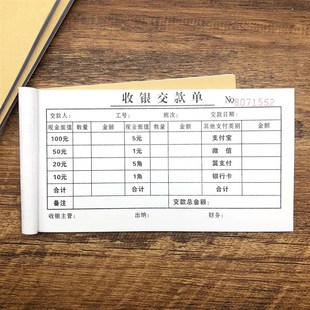 收银交款单 No 8071552
交款人： 工号： 班次： 交款日期：
现金面值 数量 金额 现金面值 数量 金额 其他支付类别 金额
100元 5元 支付宝
50元 1元 微信
20元 5角 翼支付
10元 1角 银行卡
合计 合计 合计
备注 交款总金额：
收银主管： 出纳： 财务：